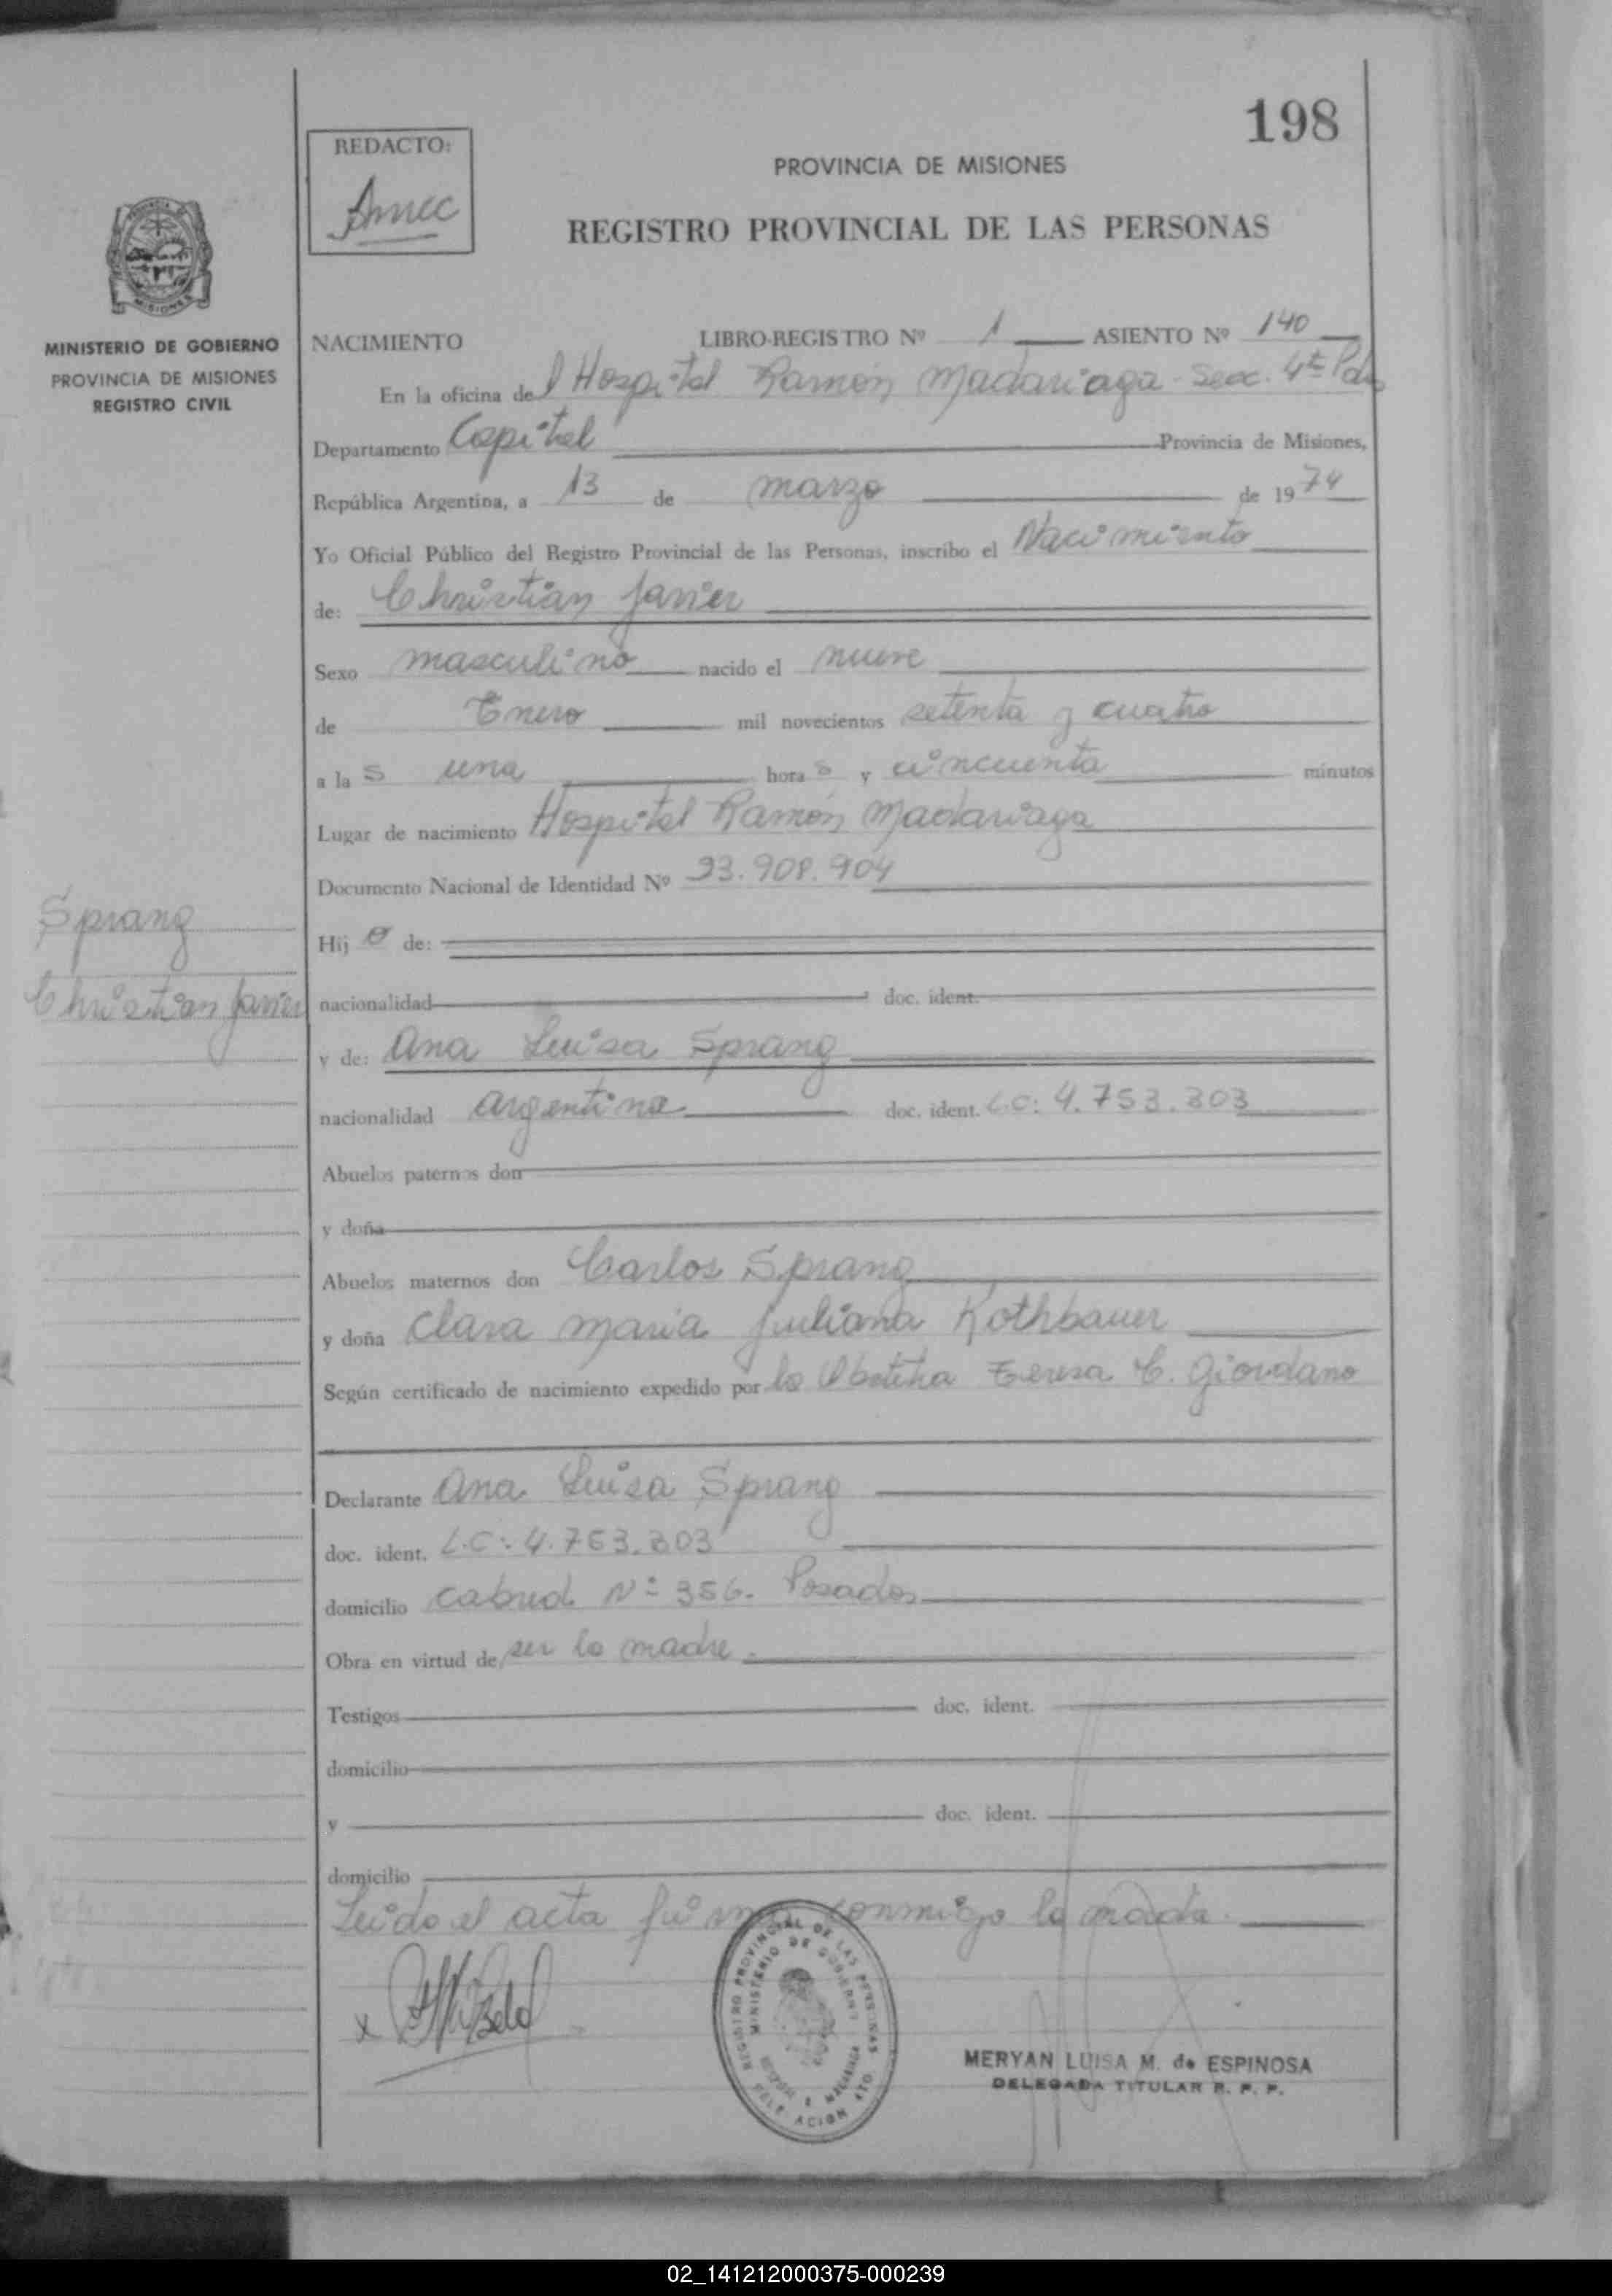 198
REDACTO:
PROVINCIA DE MISIONES
REGISTRO PROVINCIAL DE LAS PERSONAS
MISIONES
MINISTERIO DE GOBIERNO
PROVINCIA DE MISIONES
REGISTRO CIVIL
NACIMIENTO LIBRO-REGISTRO Nº 1 ASIENTO Nº 140
En la oficina del Hospital Ramón Madariaga - Secc. 4ta Pdas
Departamento Capital Provincia de Misiones,
República Argentina, a 13 de marzo de 1974
Yo Oficial Público del Registro Provincial de las Personas, inscribo el Nacimiento
de: Christian Javier
Sexo masculino nacido el nueve
de Enero mil novecientos setenta y cuatro
a las una horas y cincuenta minutos
Lugar de nacimiento Hospital Ramón Madariaga
Documento Nacional de Identidad Nº 23.908.904
Sprang
Christian Javier
Hijo de:
nacionalidad doc. ident.
y de: Ana Luisa Sprang
nacionalidad argentina doc. ident. L.C: 4.753.303
Abuelos paternos don
y doña
Abuelos maternos don Carlos Sprang
y doña Clara maria Juliana Rothbauer
Según certificado de nacimiento expedido por la Obstetra Teresa C. Giordano
Declarante Ana Luisa Sprang
doc. ident. L.C: 4.753.303
domicilio Cabred Nº 356. Posadas
Obra en virtud de ser la madre.
Testigos doc. ident.
domicilio
y doc. ident.
domicilio
Leido el acta firma conmigo la madre.
x
REGISTRO PROVINCIAL DE LAS PERSONAS
MINISTERIO DE GOBIERNO
MERYAN LUISA M. de ESPINOSA
DELEGADA TITULAR R. P. P.
02_141212000375-000239